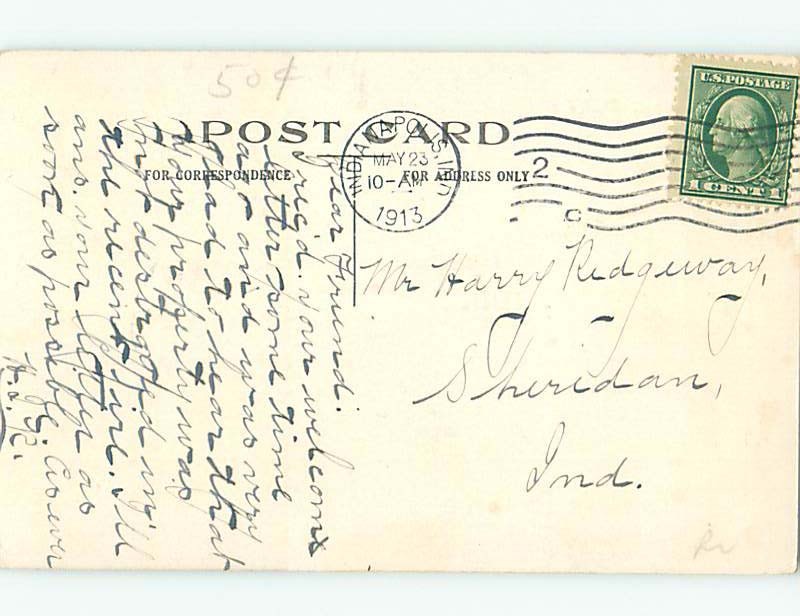 50¢
POST CARD
FOR CORRESPONDENCE
FOR ADDRESS ONLY
INDIANAPOLIS, IND
MAY 23
10-AM
1913
2
C
U.S. POSTAGE
1 CENT 1
Mr Harry Ridgeway,
Sheridan,
Ind.
Dear Friend:
Rec'd. your welcome
letter some time
ago and was very
glad to hear that
your property was
not destroyed in
the recent fire. I'll
ans. your letter as
soon as possible. As ever